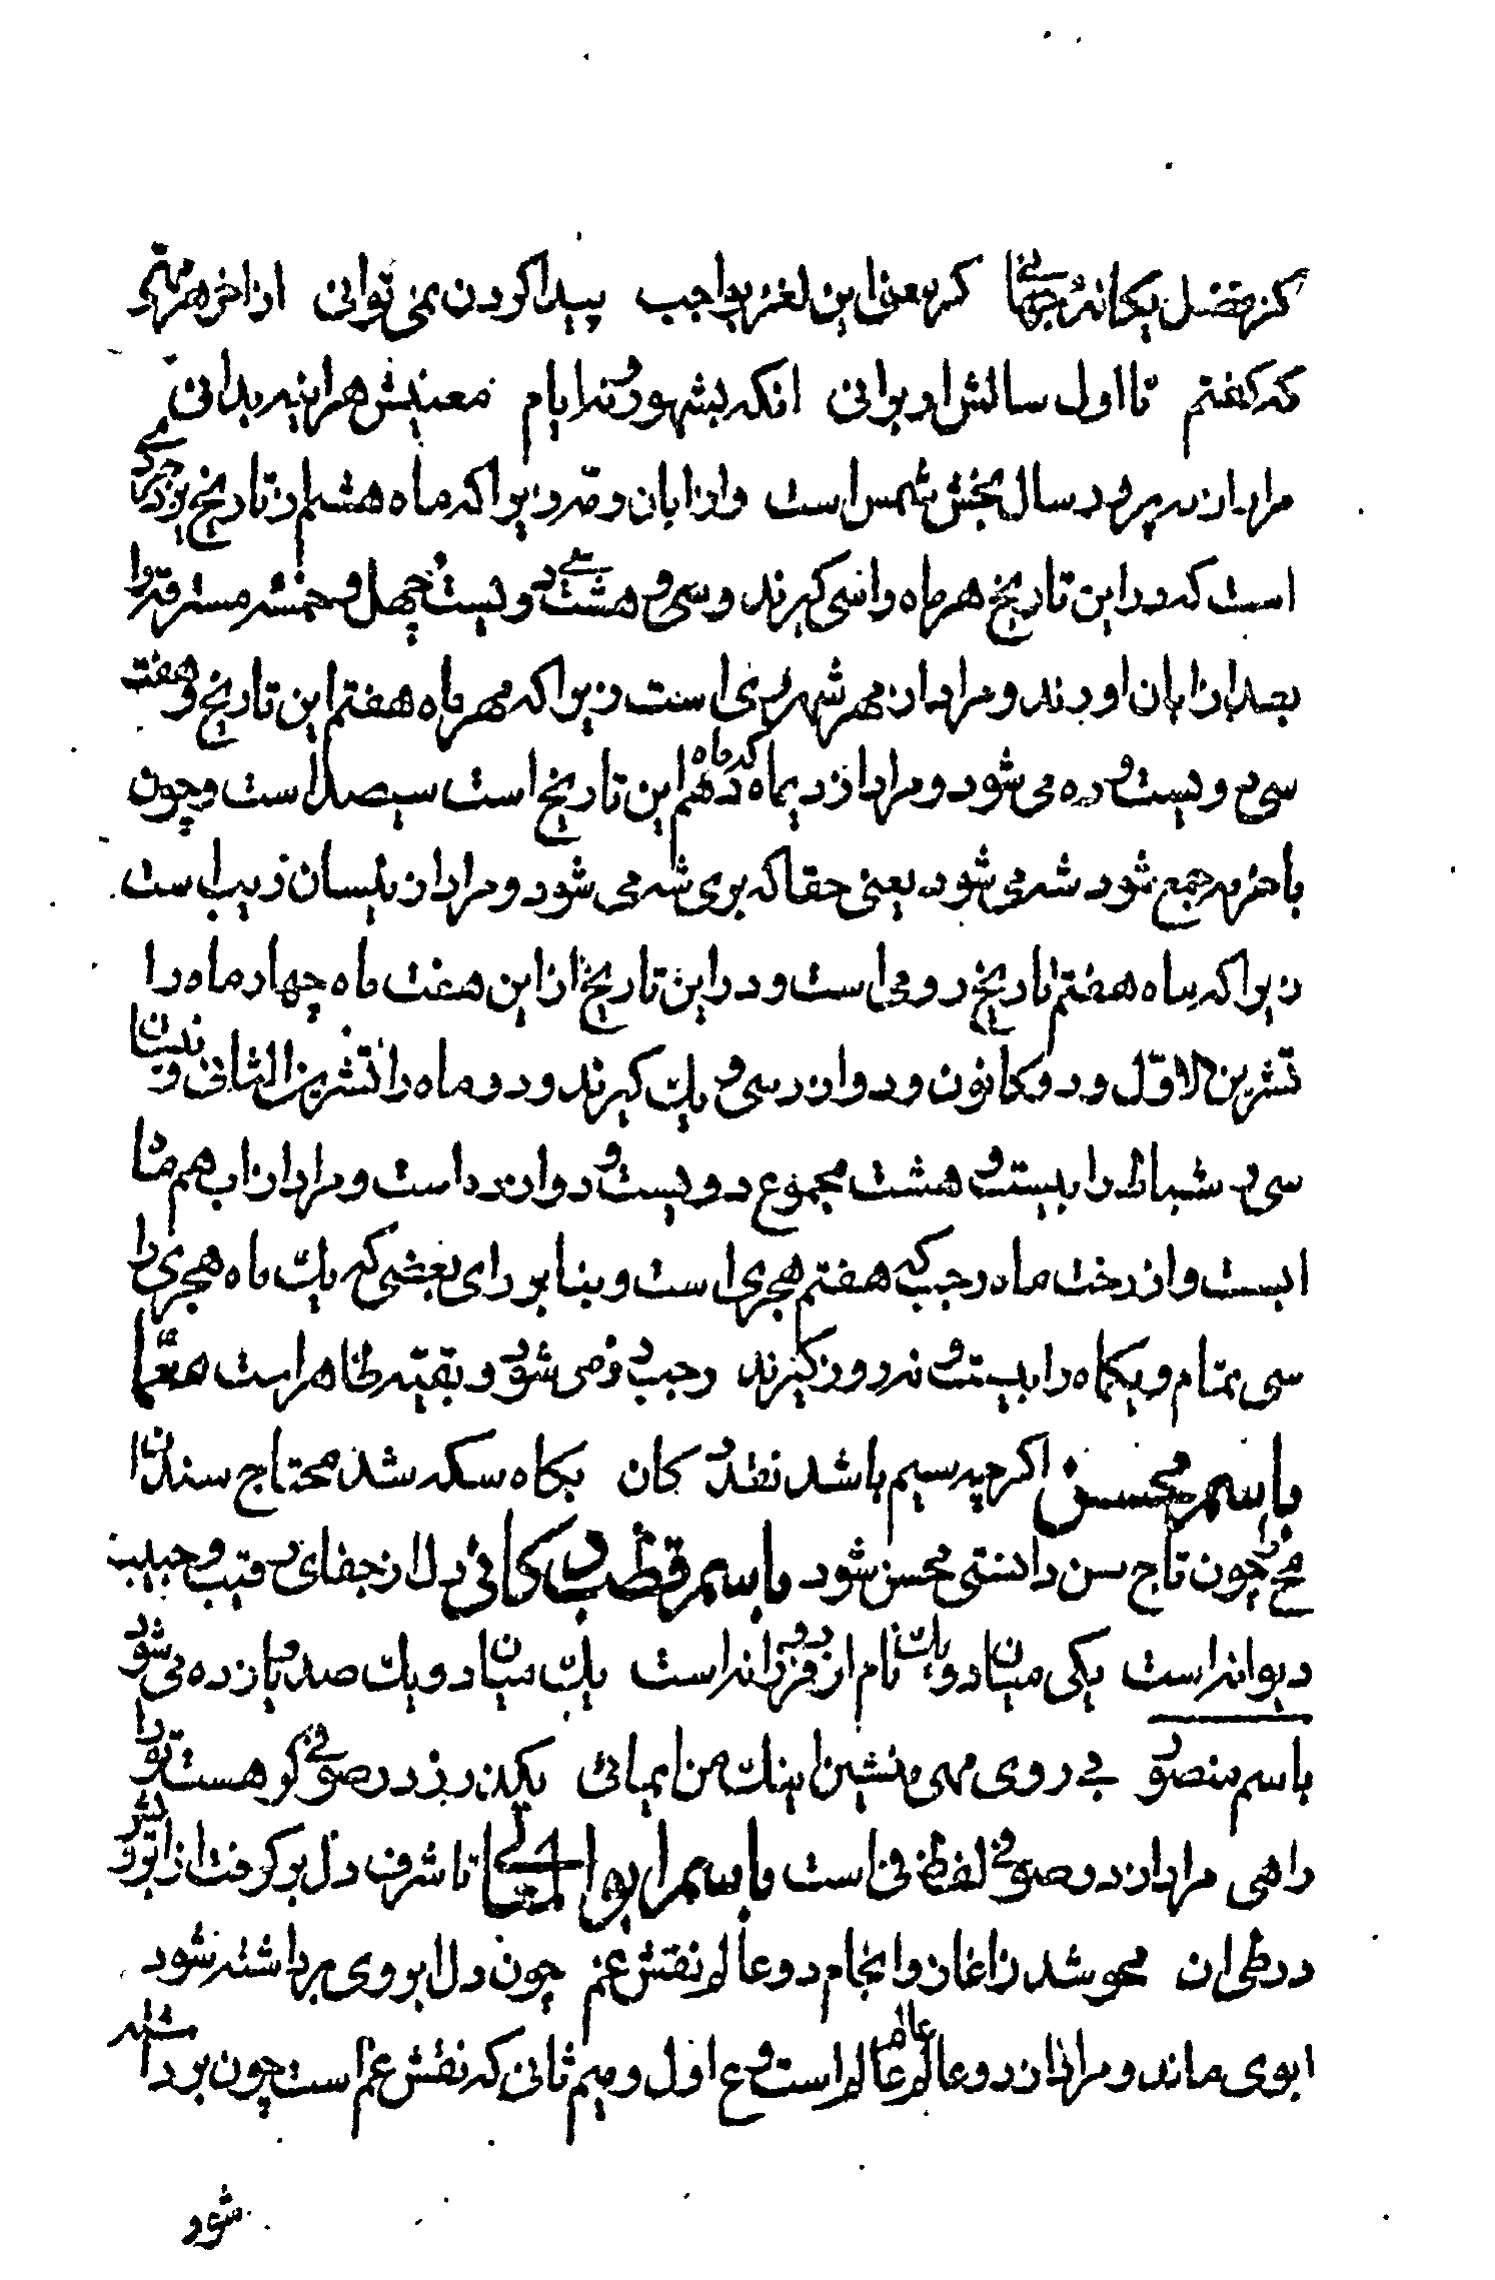 کز فضل یکانهٔ جهانی که معنی این لغز بواجب پیدا کردن نمی توانی از اخر هر مهی
که کفتم تا اول سالش ار بوانی انکه بشهور و نه ایام معنیش هر اینه بدانی
مراد از سال بخش شمس است و از ابان و قدر زیرا که ماه هشتم از تاریخ یزدجردی
است که در این تاریخ هر ماه را سی کیرند و سی و هشت دویست و چهل و خمسه مسترقه را
بعد از ابان اورند و مراد از مهر شهری است زیرا که مهر ماه هفتم این تاریخ و هفت
سی دویست و ده می شود و مراد از دیماه که ماه دهم این تاریخ است سیصد است و چون
با جمع شود شه می شود یعنی حقا که بری شه می شود و مراد از نیسان زیب است
زیرا که ماه هفتم تاریخ رومی است و در این تاریخ از این هفت ماه چهار ماه را
تشرین الاول و دو کانون و دو اذر سی و یک کیرند و دو ماه را تشرین الثانی و نیسان
سی و شباط را بیست و هشت مجموع دویست و دوازده است و مراد از اب هم ماد
ابست و از رخت ماه رجب که هفتم هجری است و بنا بر رای بعضی که یک ماه هجری را
سی تمام و یکماه را بیست و نه روز کیرند رجب دز می شود و بقیه ظاهر است معما
باسم محسن اکرچه سیم باشد نقد کان بکاه سکه شد محتاج سندان
مح را چون تاج سن دانستی محسن شود باسم قطب کانی دل از جفای رقیب و حبیب
دیوانه است یکی میان دو یک نام از دو فرزانه است یک میان دو یک صد و یازده می شود
باسم منصور بی روی مهی منشین اینک من ایمائی یکذر ز در صوفی کو هست ترا
راهی مراد از در صوفی لفظ فی است باسم ابو المعالی تا شرف دل بر کرفت از ابرو
در طی ان محو شد زاغاز و انجام دو عالم نقش غم چون دل ابروی برداشته شود
ابوی ماند و مراد از دو عالم عالم عالم است و ع اول و میم ثانی که نقش غم است چون برداشته
شود